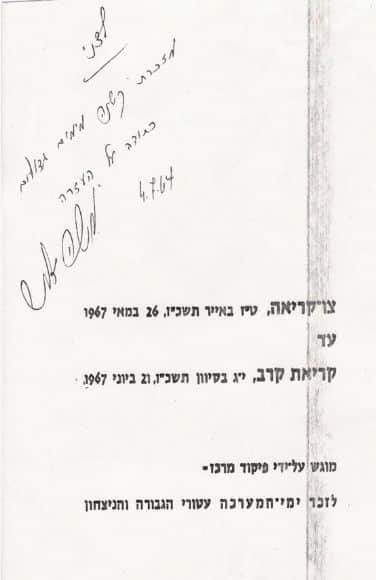 מזכרת קטנה מימים גדולים
בתודה על העזרה
4.7.67
צו־קריאה, ט״ז באייר תשכ״ז, 26 במאי 1967
עד
קריאת קרב, י״ג בסיוון תשכ״ז, 21 ביוני 1967.
מוגש על־ידי פיקוד מרכז-
לזכר ימי־המערכה עטורי הגבורה והניצחון